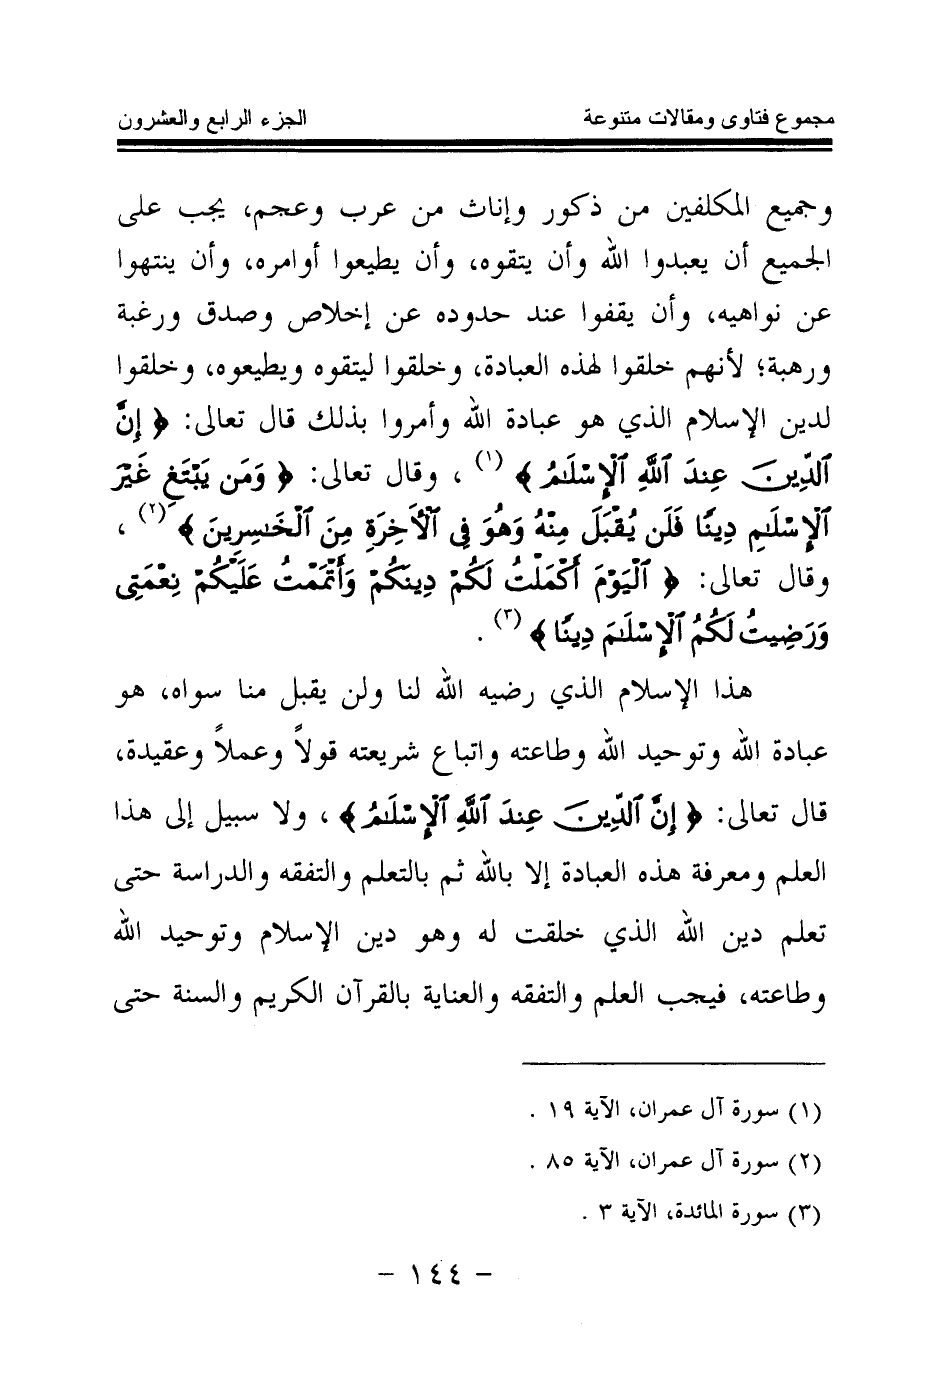 مجموع فتاوى ومقالات متنوعة الجزء الرابع والعشرون
وجميع المكلفين من ذكور وإناث من عرب وعجم، يجب على
الجميع أن يعبدوا الله وأن يتقوه، وأن يطيعوا أوامره، وأن ينتهوا
عن نواهيه، وأن يقفوا عند حدوده عن إخلاص وصدق ورغبة
ورهبة؛ لأنهم خلقوا لهذه العبادة، وخلقوا ليتقوه ويطيعوه، وخلقوا
لدين الإسلام الذي هو عبادة الله وأمروا بذلك قال تعالى: ﴿ إِنَّ
ٱلدِّينَ عِندَ ٱللَّهِ ٱلْإِسْلَٰمُ ﴾ (١) ، وقال تعالى: ﴿ وَمَن يَبْتَغِ غَيْرَ
ٱلْإِسْلَٰمِ دِينًا فَلَن يُقْبَلَ مِنْهُ وَهُوَ فِى ٱلْأَخِرَةِ مِنَ ٱلْخَٰسِرِينَ ﴾ (٢) ،
وقال تعالى: ﴿ ٱلْيَوْمَ أَكْمَلْتُ لَكُمْ دِينَكُمْ وَأَتْمَمْتُ عَلَيْكُمْ نِعْمَتِى
وَرَضِيتُ لَكُمُ ٱلْإِسْلَٰمَ دِينًا ﴾ (٣) .
هذا الإسلام الذي رضيه الله لنا ولن يقبل منا سواه، هو
عبادة الله وتوحيد الله وطاعته واتباع شريعته قولاً وعملاً وعقيدة،
قال تعالى: ﴿ إِنَّ ٱلدِّينَ عِندَ ٱللَّهِ ٱلْإِسْلَٰمُ ﴾ ، ولا سبيل إلى هذا
العلم ومعرفة هذه العبادة إلا بالله ثم بالتعلم والتفقه والدراسة حتى
تعلم دين الله الذي خلقت له وهو دين الإسلام وتوحيد الله
وطاعته، فيجب العلم والتفقه والعناية بالقرآن الكريم والسنة حتى
(١) سورة آل عمران، الآية ١٩ .
(٢) سورة آل عمران، الآية ٨٥ .
(٣) سورة المائدة، الآية ٣ .
- ١٤٤ -